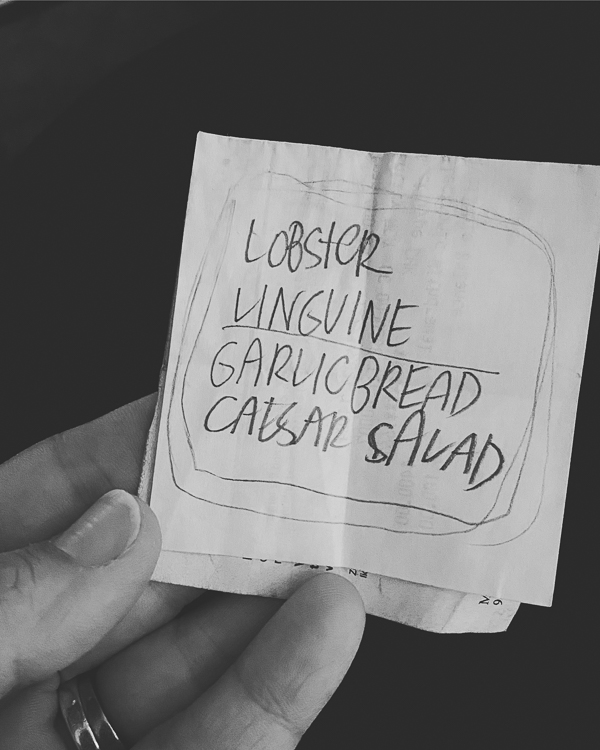 LOBSTER
LINGUINE
GARLIC BREAD
CAESAR SALAD